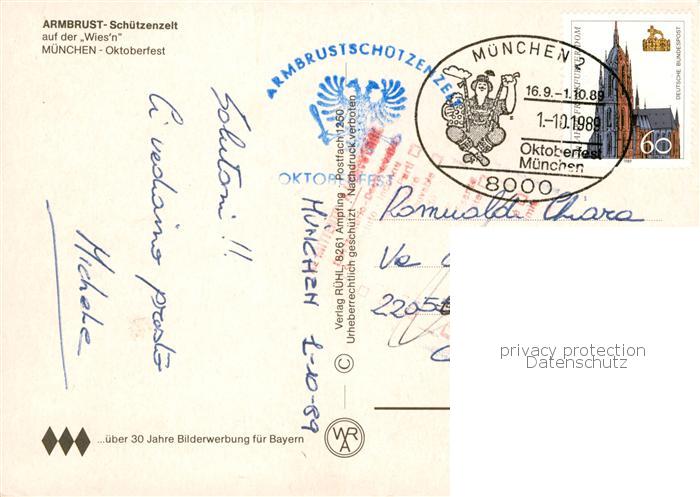 ARMBRUST-Schützenzelt
auf der „Wies'n"
MÜNCHEN - Oktoberfest
Salutoni !!
Ci vediamo presto
Michele
MÜNCHEN 1-10-89
ARMBRUSTSCHÜTZENZELT
OKTOBERFEST
Verlag RÜHL, 8261 Ampfing · Postfach 1260
Urheberrechtlich geschützt · Nachdruck verboten
MÜNCHEN 2
16.9.-1.10.89
1.-10.1989
Oktoberfest
München
8000
DEUTSCHE BUNDESPOST
60
1989
Romualdi Chiara
privacy protection
Datenschutz
...über 30 Jahre Bilderwerbung für Bayern
WRA